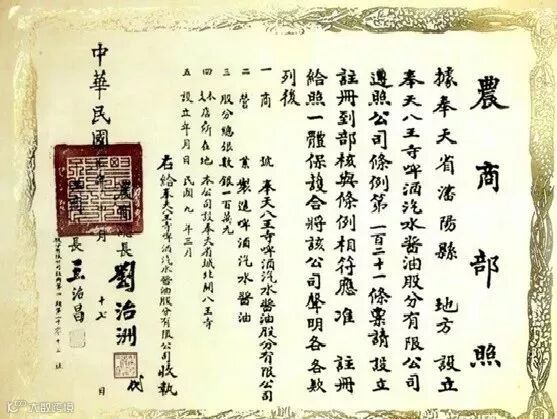 農商部照
據奉天省瀋陽縣 地方 設立
奉天八王寺啤酒汽水醬油股分有限公司
遵照公司條例第一百二十一條稟請設立
註冊到部核與條例相符應准 註冊
給照一體保護合將該公司聲明各各欵
列後
一 商 號 奉天八王寺啤酒汽水醬油股分有限公司
二 營 業 製造啤酒汽水醬油
三 股分總張數銀一百萬元
四 本店所在地 本公司設奉天省城北關八王寺
五 設立年月日 民國九年三月
右給奉天八王寺啤酒汽水醬油股分有限公司收執
中華民國 年 月 十七 日
農商總長 劉治洲 代
長 王治昌